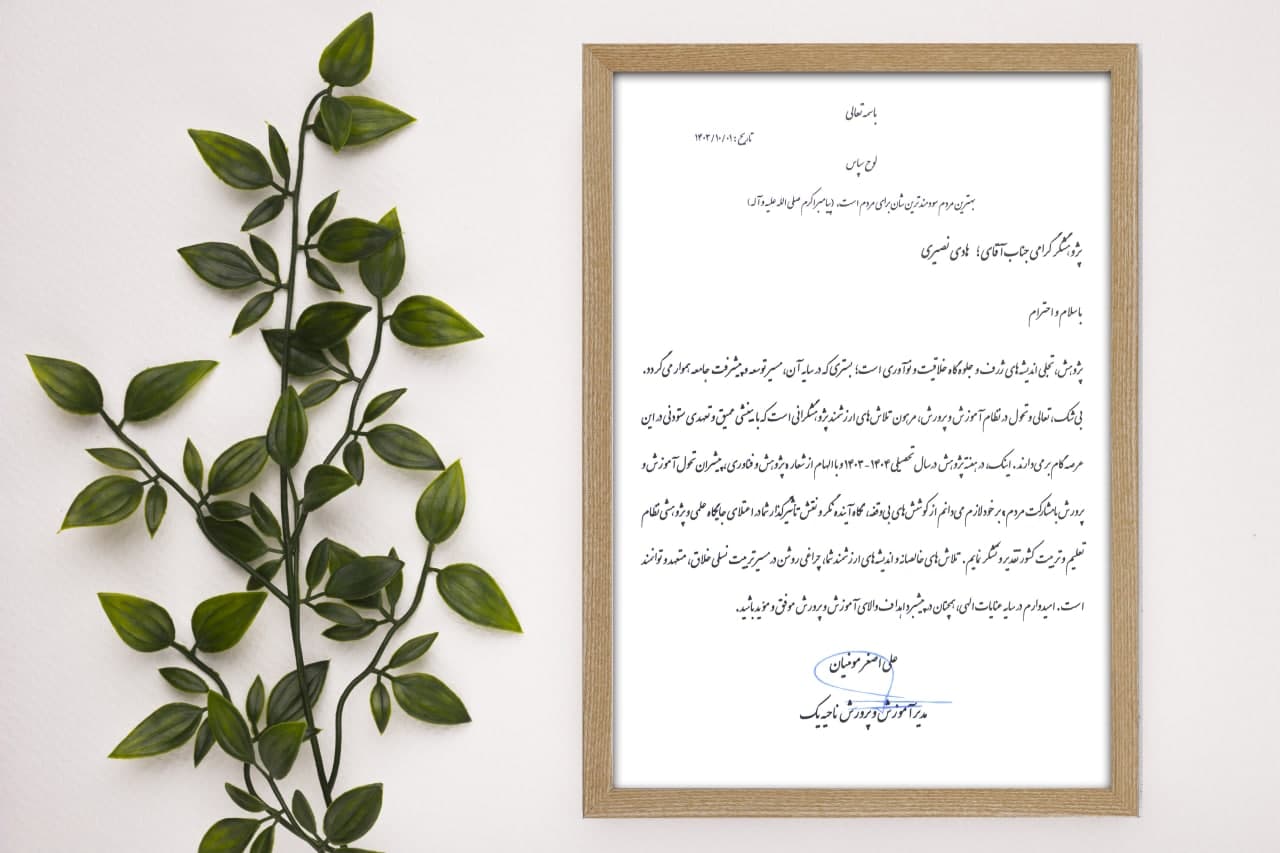 باسمه تعالی
تاریخ: ۱۴۰۳/۱۰/۰۱
لوح سپاس
بهترین مردم سودمندترین شان برای مردم است. (پیامبر اکرم صلی الله علیه و آله)
پژوهشگر گرامی جناب آقای؛ هادی نصیری
با سلام و احترام
پژوهش، تجلی اندیشه‌های ژرف و جلوه گاه خلاقیت و نوآوری است؛ بستری که در سایه آن، مسیر توسعه و پیشرفت جامعه هموار می‌گردد.
بی شک، تعالی و تحول در نظام آموزش و پرورش، مرهون تلاش‌های ارزشمند پژوهشگرانی است که با بینشی عمیق و تعهدی ستودنی در این
عرصه گام برمی‌دارند. اینک، در هفته پژوهش در سال تحصیلی ۱۴۰۴-۱۴۰۳ و با الهام از شعار « پژوهش و فناوری، پیشران تحول آموزش و
پرورش با مشارکت مردم » بر خود لازم می‌دانم از کوشش‌های بی وقفه، نگاه آینده نگر و نقش تأثیرگذار شما در اعتلای جایگاه علمی و پژوهشی نظام
تعلیم و تربیت کشور تقدیر و تشکر نمایم. تلاش‌های خالصانه و اندیشه‌های ارزشمند شما، چراغی روشن در مسیر تربیت نسلی خلاق، متعهد و توانمند
است. امیدوارم در سایه عنایات الهی، همچنان در پیشبرد اهداف والای آموزش و پرورش موفق و مؤید باشید.
علی اصغر مومنیان
مدیر آموزش و پرورش ناحیه یک